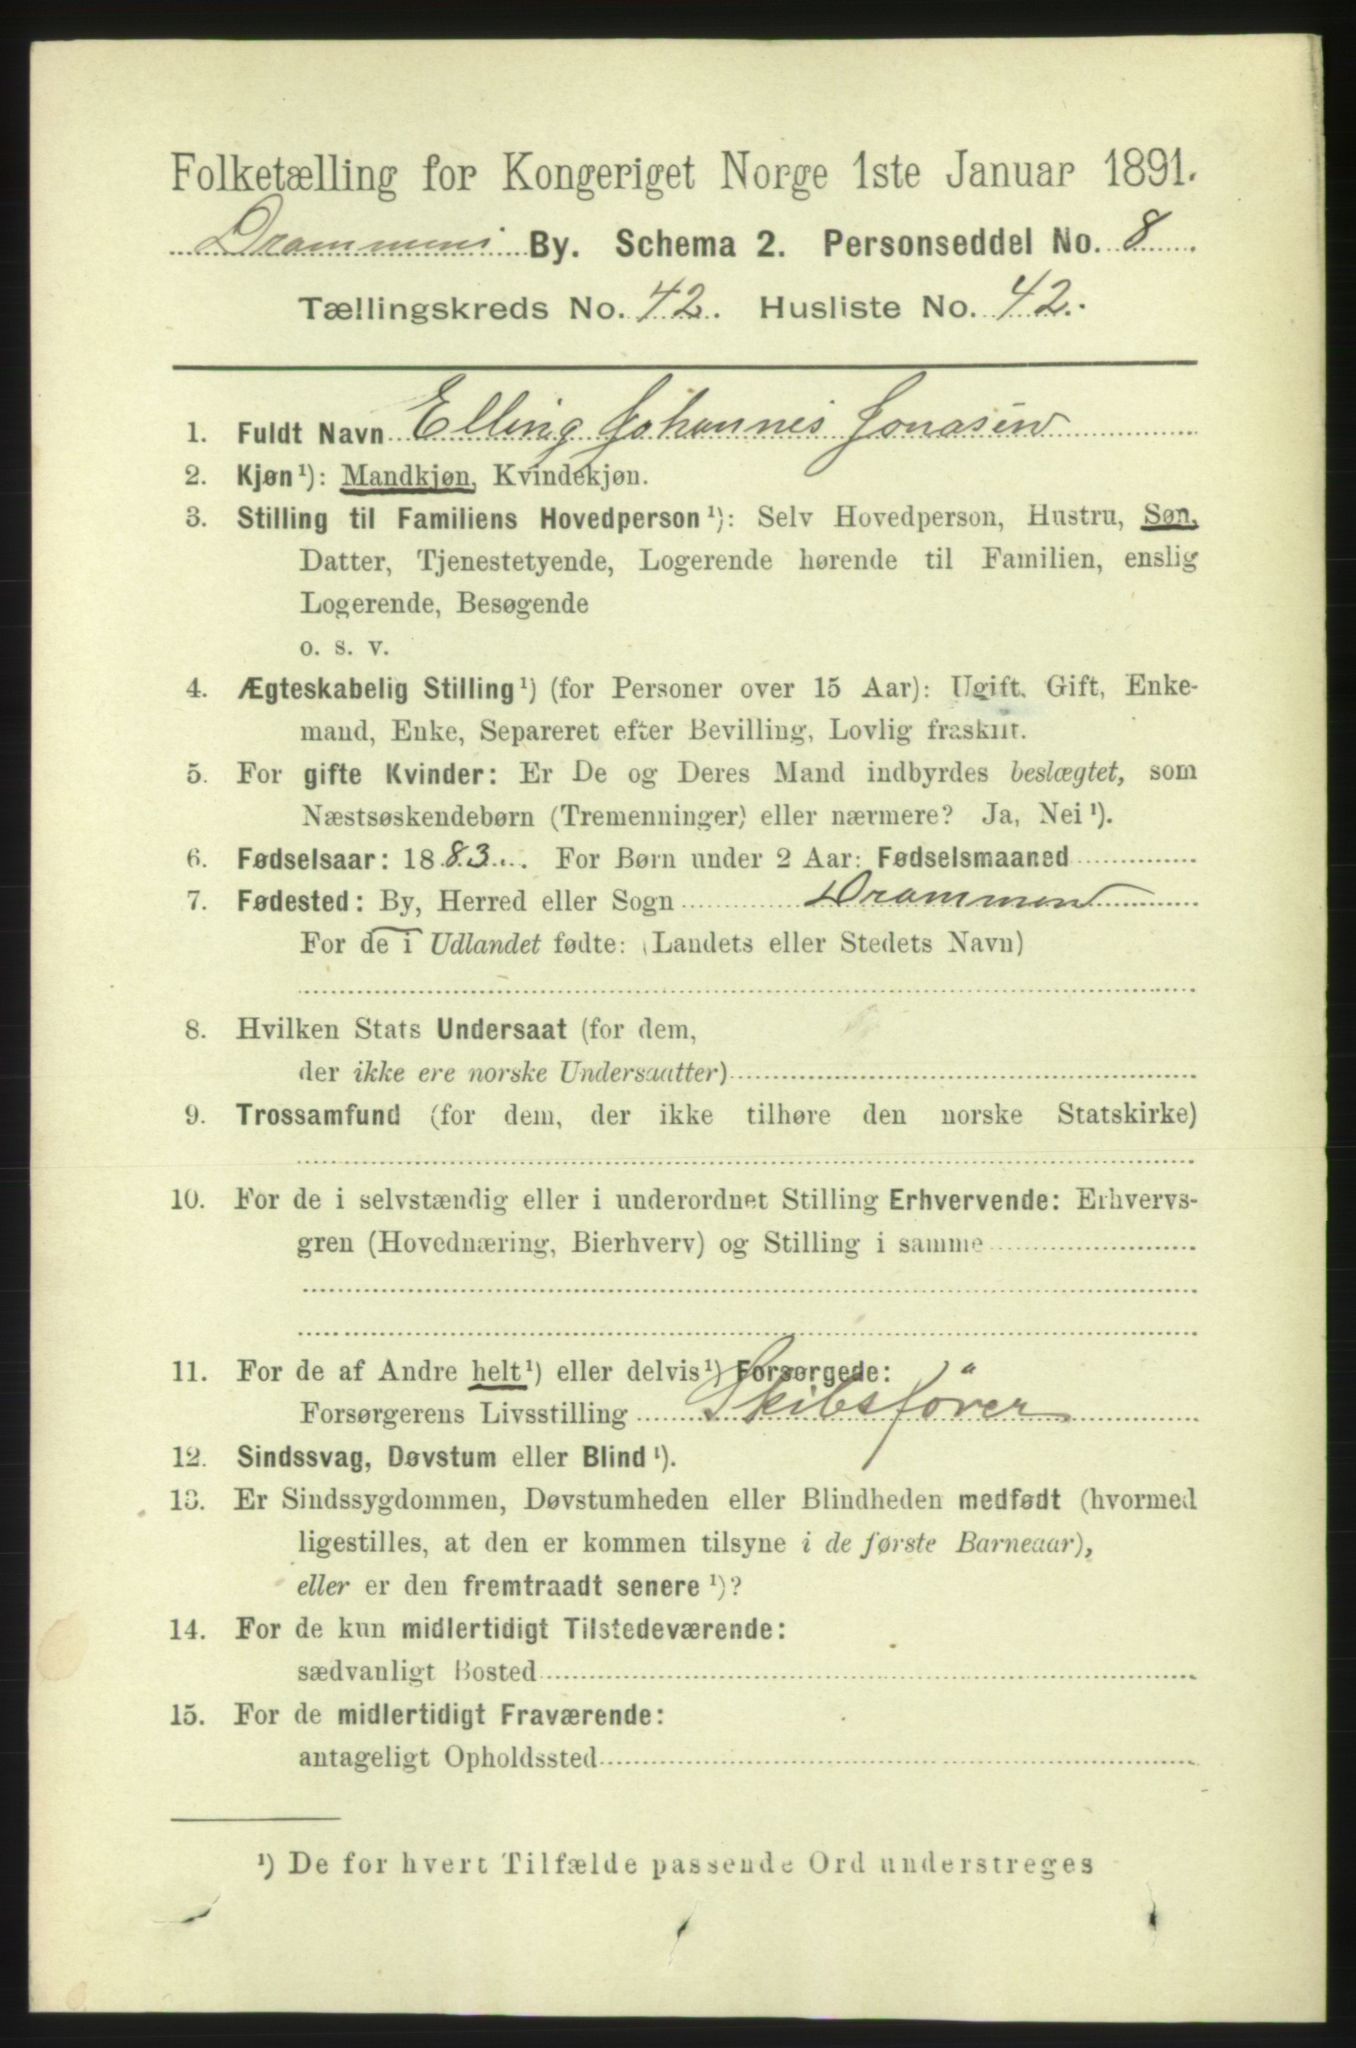 Folketælling for Kongeriget Norge 1ste Januar 1891.
Drammens By. Schema 2. Personseddel No. 8
Tællingskreds No. 42. Husliste No. 42.
1. Fuldt Navn Elling Johannes Jonasen
2. Kjøn¹): Mandkjøn, Kvindekjøn.
3. Stilling til Familiens Hovedperson¹): Selv Hovedperson, Hustru, Søn,
Datter, Tjenestetyende, Logerende hørende til Familien, enslig
Logerende, Besøgende
o. s. v.
4. Ægteskabelig Stilling¹) (for Personer over 15 Aar): Ugift, Gift, Enke-
mand, Enke, Separeret efter Bevilling, Lovlig fraskilt.
5. For gifte Kvinder: Er De og Deres Mand indbyrdes beslægtet, som
Næstsøskendebørn (Tremenninger) eller nærmere? Ja, Nei¹).
6. Fødselsaar: 1883. For Børn under 2 Aar: Fødselsmaaned
7. Fødested: By, Herred eller Sogn Drammen
For de i Udlandet fødte: (Landets eller Stedets Navn)
8. Hvilken Stats Undersaat (for dem,
der ikke ere norske Undersaatter)
9. Trossamfund (for dem, der ikke tilhøre den norske Statskirke)
10. For de i selvstændig eller i underordnet Stilling Erhvervende: Erhvervs-
gren (Hovednæring, Bierhverv) og Stilling i samme
11. For de af Andre helt¹) eller delvis¹) Forsørgede:
Forsørgerens Livsstilling Skibsförer
12. Sindssvag, Døvstum eller Blind¹).
13. Er Sindssygdommen, Døvstumheden eller Blindheden medfødt (hvormed
ligestilles, at den er kommen tilsyne i de første Barneaar),
eller er den fremtraadt senere¹)?
14. For de kun midlertidigt Tilstedeværende:
sædvanligt Bosted
15. For de midlertidigt Fraværende:
antageligt Opholdssted
¹) De for hvert Tilfælde passende Ord understreges